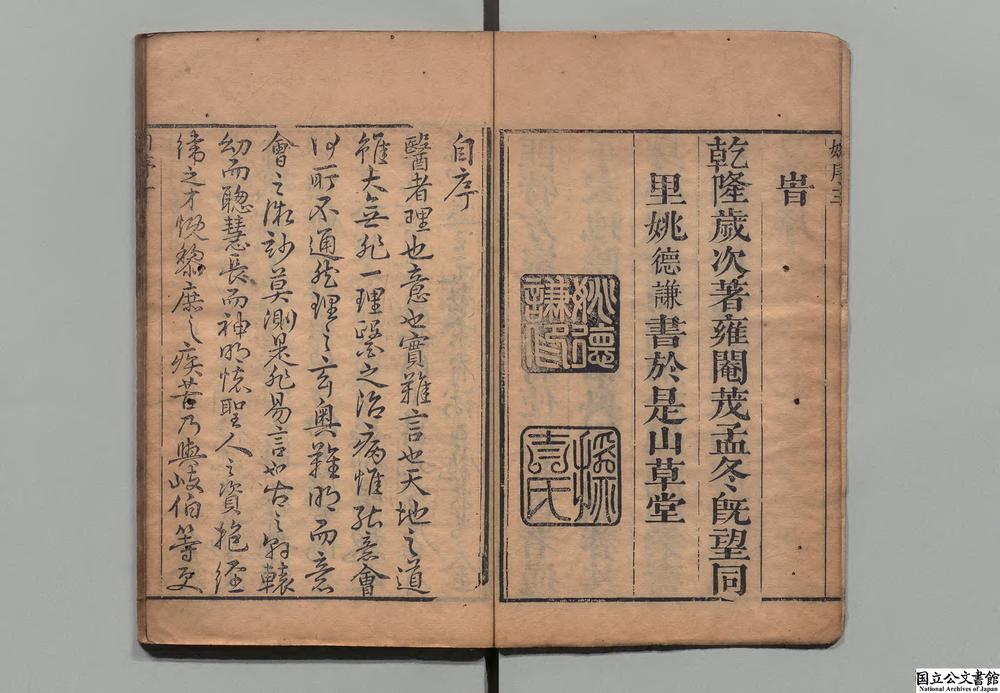 姚序 三
旹
乾隆歲次著雍閹茂孟冬旣望同
里姚德謙書於是山草堂
姚德謙印
自序
醫者理也意也實難言也天地之道
雖大無非一理醫之治病惟能意會
何所不通然理之玄奧難明而意
會之微妙莫測是非易言也古之軒轅
幼而聰慧長而神明懷聖人之資抱經
緯之才慨黎庶之疾苦乃與岐伯等更
国立公文書館
National Archives of Japan